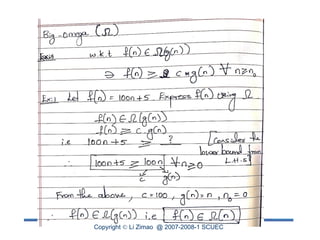 Big-omega (Ω)
w.k.t f(n) ∈ Ω(g(n))
∋ f(n) ≥ c * g(n) ∀ n≥n₀
Ex:1 Let f(n) = 100n+5. Express f(n) using Ω
f(n) ∈ Ω(g(n))
f(n) ≥ c.g(n)
i.e 100n+5 ≥ ? [Consider the lower bound from L.H.S]
∴ 100n+5 ≥ 100n ∀ n≥0
c g(n)
From the above, c=100, g(n)=n, n₀=0
∴ f(n) ∈ Ω(g(n)) i.e f(n) ∈ Ω(n)
Copyright © Li Zimao @ 2007-2008-1 SCUEC